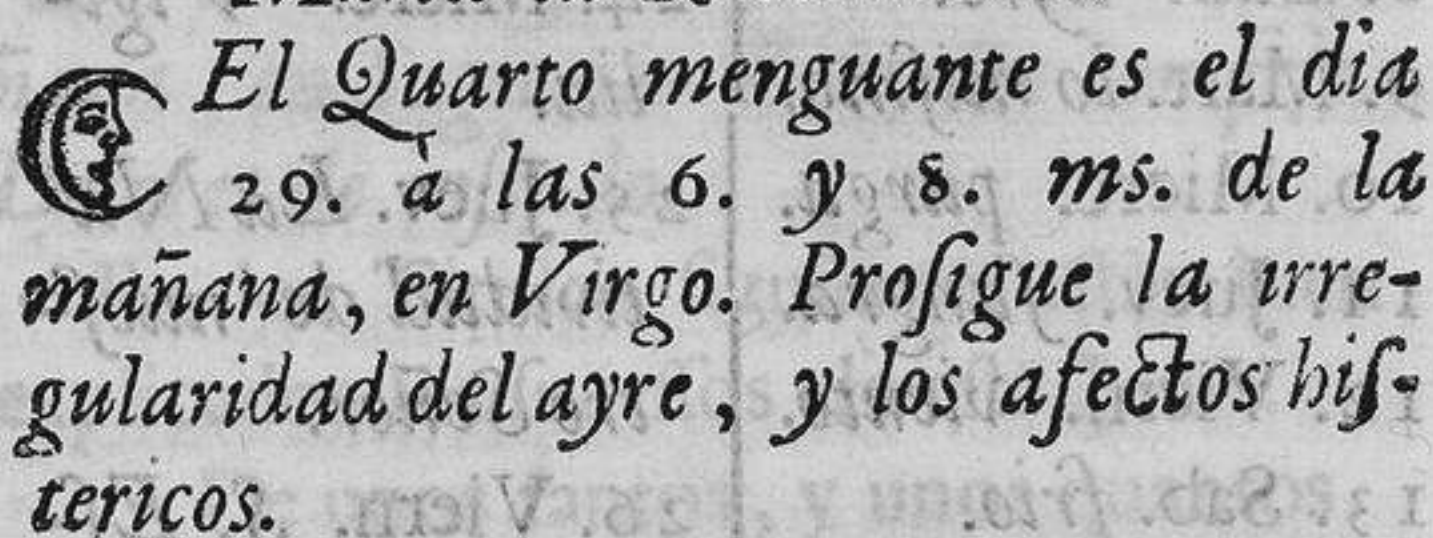 El Quarto menguante es el dia
29. à las 6. y 8. ms. de la
mañana, en Virgo. Proſigue la irre-
gularidad del ayre, y los afectos hiſ-
tericos.